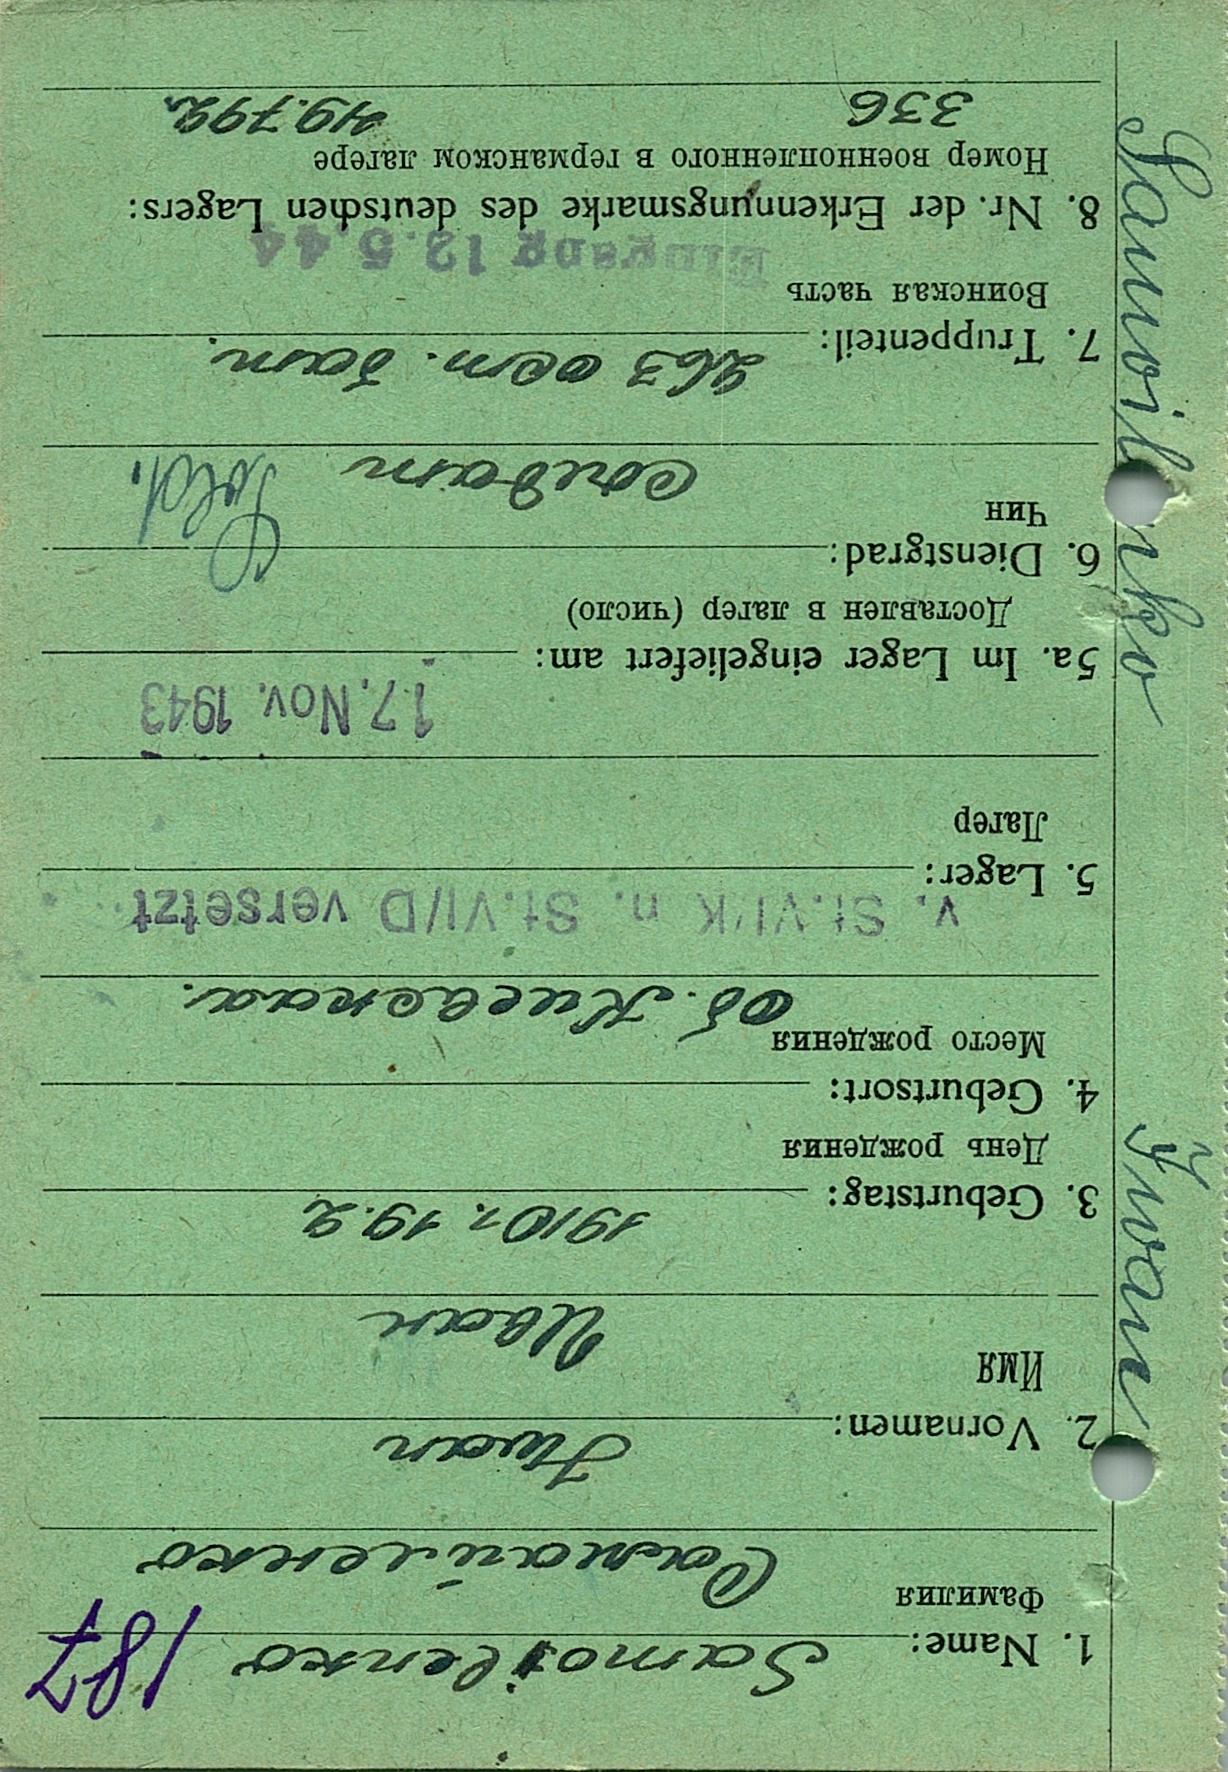 187
1. Name: Samoilenko
Фамилия Самойленко
2. Vornamen: Iwan
Имя Иван
3. Geburtstag: 1910 г. 19.2
День рождения
4. Geburtsort:
Место рождения Об. Киевская.
v. St.VI/K n. St.VI/D versetzt
5. Lager:
Лагер
17. Nov. 1943
5a. Im Lager eingeliefert am:
Доставлен в лагер (число)
6. Dienstgrad: Sold.
Чин солдат
7. Truppenteil: 263 ост. бат.
Воинская часть
Eingang 12.5.44
8. Nr. der Erkennungsmarke des deutschen Lagers:
Номер военнопленного в германском лагере
336 49.792.
Samoilenko Iwan